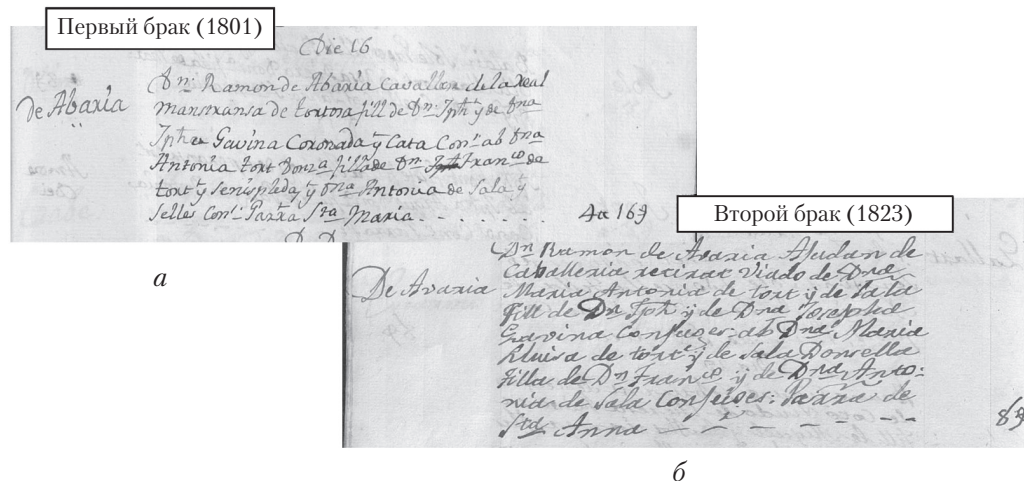 Первый брак (1801)
Die 16
de Abaria
Dn. Ramon de Abaria Cavaller de la real
Maestransa de tortosa fill de Dn. Jph y de Dna
Jpha Gavina Coronada y Cata Con.s ab Dna
Antonia tort Donza filla de Dn Franco de
tort y Senispleda, y Dna Antonia de Sala y
Selles Con.s Parra Sta Maria . . . . . .
4tt 16 ș
Второй брак (1823)
а
De Avaria
Dn Ramon de Avaria Ajudan de
Caballeria retirat Viudo de Dna
Maria Antonia de tort y de Sala
fill de Dn Jph y de Dna Josepha
Gravina Conjuges: ab Dna Maria
Lluisa de tort y de Sala Donsella
filla de Dn Franco y de Dna Anto:
nia de Sala Conjuges: Parra de
Sta Anna — — — — — —
8 ș
б